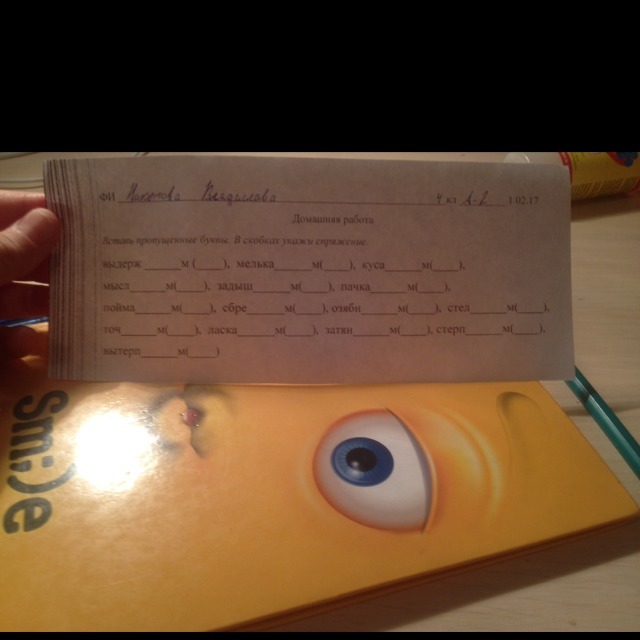 ФИ 4 кл 1.02.17
Домашняя работа
Вставь пропущенные буквы. В скобках укажи спряжение.
выдерж______м (____), мелька______м(____), куса______м(____),
мысл______м(____), задыш______м(____), пачка______м(____),
пойма______м(____), сбре______м(____), озябн______м(____), стел______м(____),
точ______м(____), ласка______м(____), затян______м(____), стерп______м(____),
вытерп______м(____)
Smile